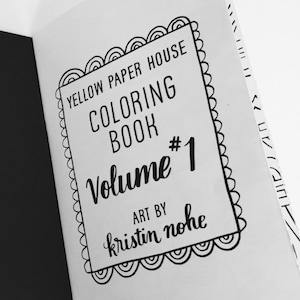 YELLOW PAPER HOUSE
COLORING
BOOK
Volume #1
ART BY
kristin nohe